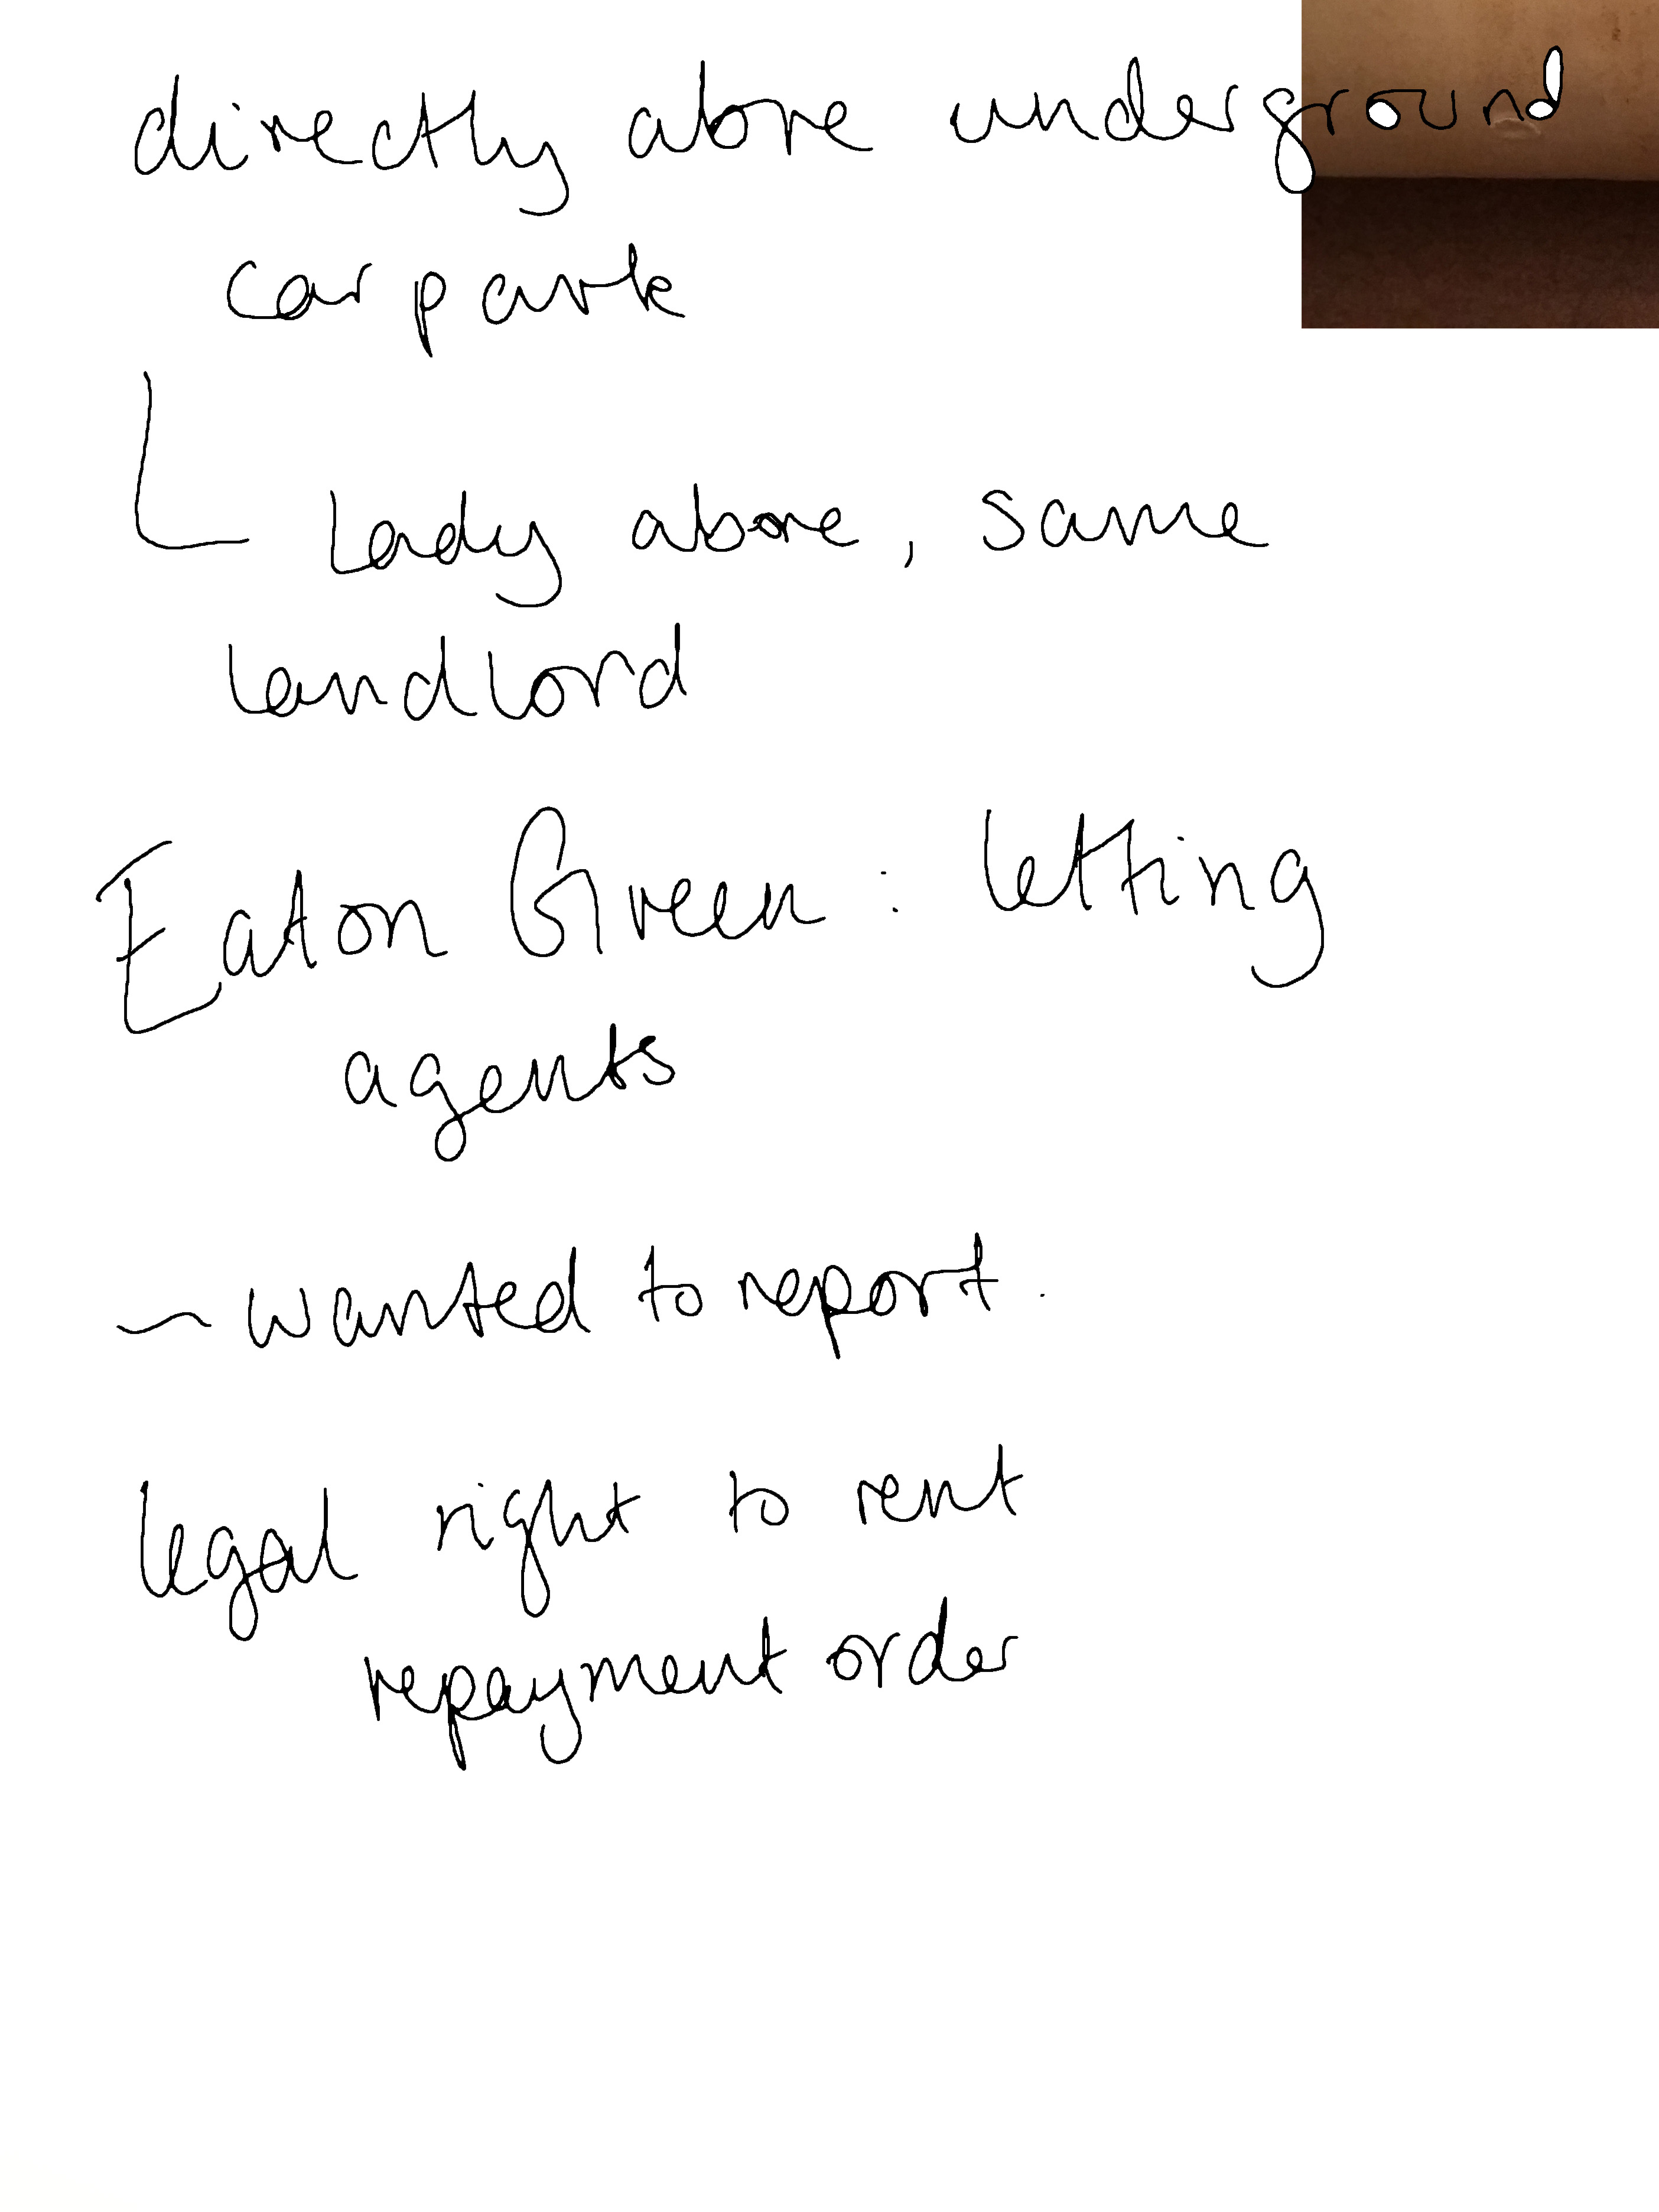 directly above underground
car park
Lady above, same
landlord
Eaton Green: letting
agents
~ wanted to report.
legal right to rent
repayment order